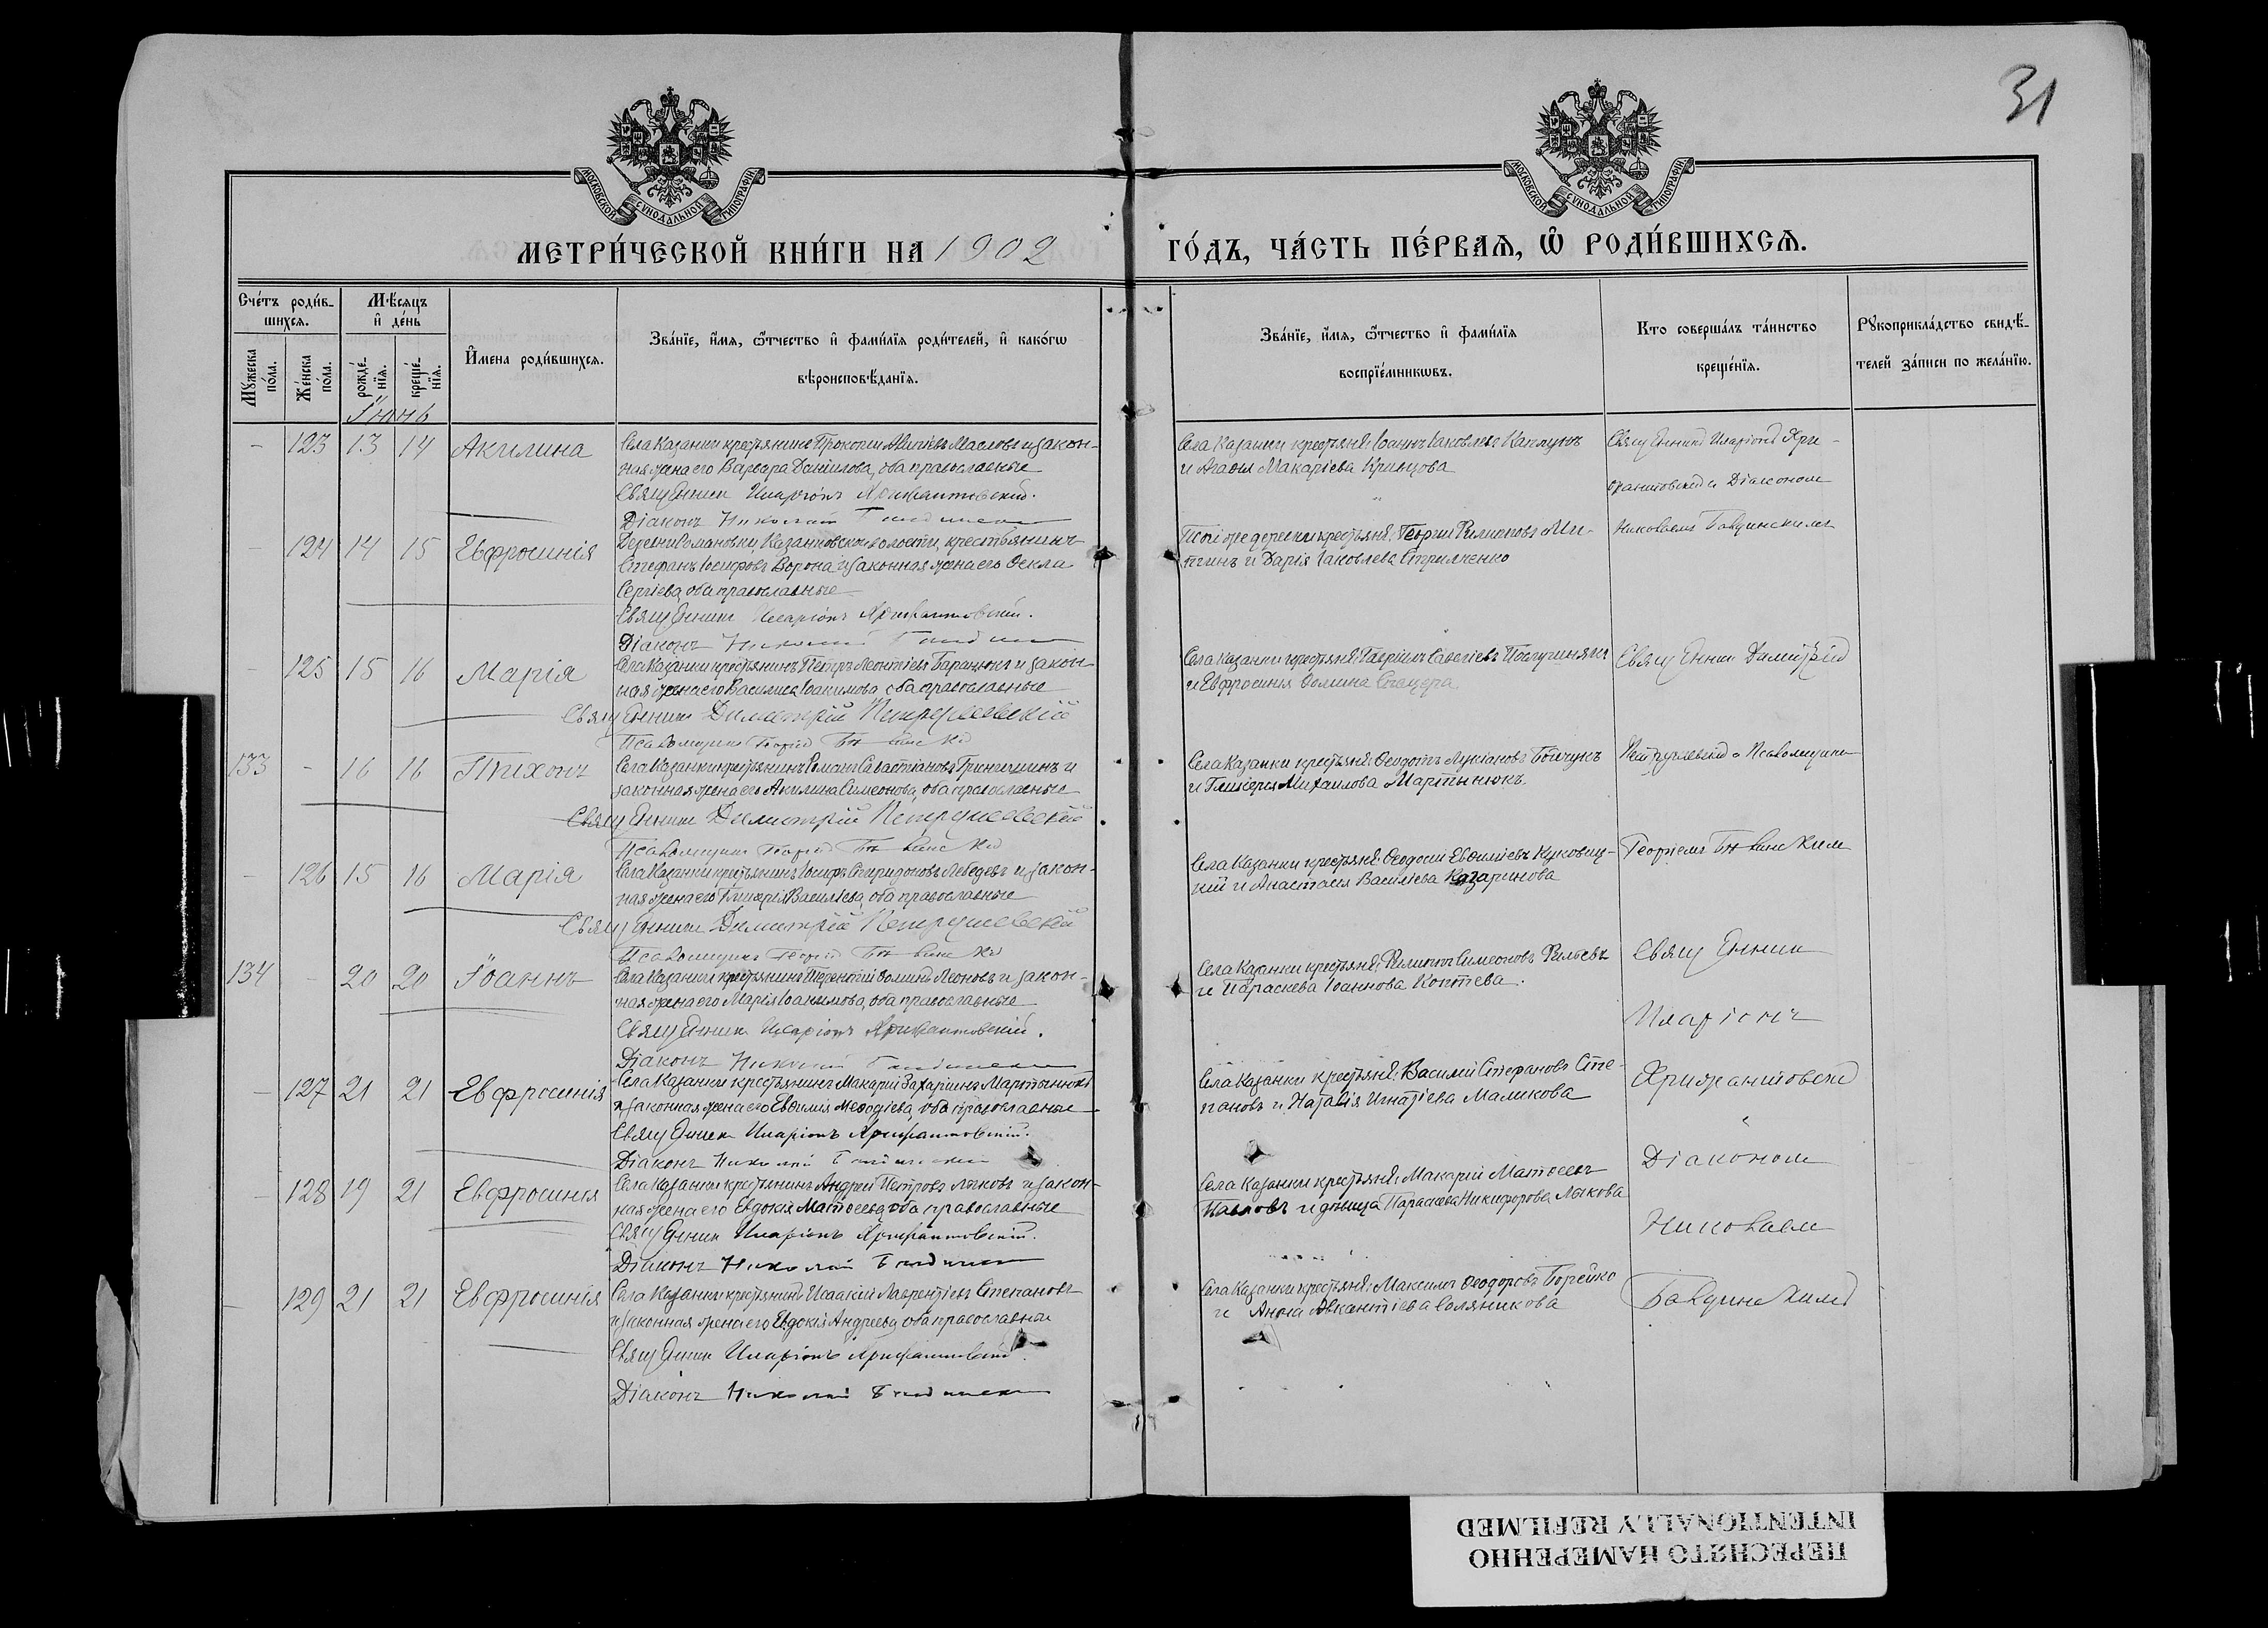 31
МОСКОВСКОЙ СѴНОДАЛЬНОЙ ТИПОГРАФІИ
МОСКОВСКОЙ СѴНОДАЛЬНОЙ ТИПОГРАФІИ
МЕТРИ́ЧЕСКОЙ КНИ́ГИ НА 1902
ГО́ДЪ, ЧА́СТЬ ПЕ́РВАѦ, Ѡ҆ РОДИ́ВШИХСѦ.
Сче́тъ роди́в-
шихсѧ.
Мꙋ́жеска по́ла.
Же́нска по́ла.
Мѣ́сѧцъ и҆ де́нь
рожде́-
нїѧ.
креще́-
нїѧ.
И҆́мена роди́вшихсѧ.
Зва́нїе, и҆́мѧ, ѻ҆́тчество и҆ фами́лїѧ роди́телей, и҆ како́гѡ
вѣроисповѣ́данїѧ.
Зва́нїе, и҆́мѧ, ѻ҆́тчество и҆ фами́лїѧ
воспрїе́мникѡвъ.
Кто соверша́лъ та́инство
креще́нїѧ.
Рꙋкоприкла́дство свидѣ́-
телей за́писи по жела́нїю.
Іюнь
- 123 13 14 Акилина
Села Казанки крестьянинъ Прокопій Масловъ и закон-
ная жена его Варвара Даніилова, оба православные
Священникъ Иларіонъ Хрисанфовскій.
Діаконъ Николай
Села Казанки крестьяне: Іоаннъ Іаковлевъ Каплунъ
и Агафія Макаріева Кривцова
Священникъ Иларіонъ Хри-
санфовскій и Діаконом
- 124 14 15 Евфросинія
Деревни Романовки, Казанковской волости, крестьянинъ
Стефанъ Іосифовъ Ворона и законная жена его Ѳекла
Сергіева, оба православные
Священникъ Иларіонъ Хрисанфовскій.
Діаконъ Николай
Той же деревни крестьяне: Георгій Филипповъ Ми-
и Дарія Іаковлева
Николаемъ
- 125 15 16 Марія
Села Казанки крестьянинъ Петръ Леонтіевъ Баранюкъ и закон
ная жена его Василиса Іоакимова оба православные
Священникъ Димитрій Петрушевскій
Псаломщикъ Георгій
Села Казанки крестьяне: Гавріилъ Савеліевъ
и Евфросинія Ѳомина
Священник Димитрій
133 - 16 16 Тихонъ
Села Казанки крестьянинъ Романъ Савастіановъ Гринишинъ и
законная жена его Акилина Симеонова, оба православные
Священникъ Димитрій Петрушевскій
Псаломщикъ Георгій
Села Казанки крестьяне: Ѳеодотъ Лукіановъ Бойчукъ
и Гликерія Михаилова Мартынюкъ.
Петрушевскій с Псаломщиком
- 126 15 16 Марія
Села Казанки крестьянинъ Іосифъ Спиридоновъ Лебедевъ и закон-
ная жена его Гликерія Васильева, оба православные
Священникъ Димитрій Петрушевскій
Псаломщикъ Георгій
Села Казанки крестьяне: Ѳеодосій Евѳиміевъ Куковиц-
кій и Анастасія Васильева Казаринова
Георгіемъ
134 - 20 20 Іоаннъ
Села Казанки крестьянинъ Терентій Ѳоминъ Леоновъ и закон-
ная жена его Марія Іоакимова, оба православные
Священникъ Иларіонъ Хрисанфовскій.
Діаконъ Николай
Села Казанки крестьяне: Филиппъ Симеоновъ
и Параскева Іоаннова Коптева.
Священник
Иларіонъ
- 127 21 21 Евфросинія
Села Казанки крестьянинъ Макарій Захаріинъ Мартынюкъ
и законная жена его Евѳимія Меѳодіева, оба православные
Священникъ Иларіонъ Хрисанфовскій.
Діаконъ Николай
Села Казанки крестьяне: Василій Стефановъ Сте-
пановъ и Наталія Игнатіева Маликова
Хрисанфовскій
Діаконом
- 128 19 21 Евфросинія
Села Казанки крестьянинъ Андрей Петровъ Лыковъ и закон-
ная жена его Евдокія Матѳеева, оба православные
Священникъ Иларіонъ Хрисанфовскій.
Діаконъ Николай
Села Казанки крестьяне: Макарій Матѳеевъ
Павловъ и дѣвица Параскева Никифорова Лыкова
Николаем
- 129 21 21 Евфросинія
Села Казанки крестьянинъ Исаакій Лаврентіевъ Степановъ
и законная жена его Евдокія Андреева, оба православные
Священникъ Иларіонъ Хрисанфовскій.
Діаконъ Николай
Села Казанки крестьяне: Максимъ Ѳеодоровъ Борейко
и Анна Авксентіева Солянникова
ПЕРЕСНЯТО НАМЕРЕННО
INTENTIONALLY REFILMED